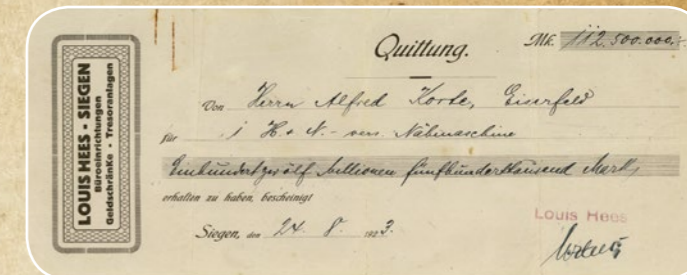 LOUIS HEES · SIEGEN
Büroeinrichtungen
Geldschränke · Tresoranlagen
Quittung.
Mk. 112.500.000,-
Von Herrn Alfred Korte, Eiserfeld
für 1 H. & N. - vers. Nähmaschine
Einhundertzwölf Millionen fünfhunderttausend Mark,
erhalten zu haben, bescheinigt
Siegen, den 24. 8. 1923.
Louis Hees